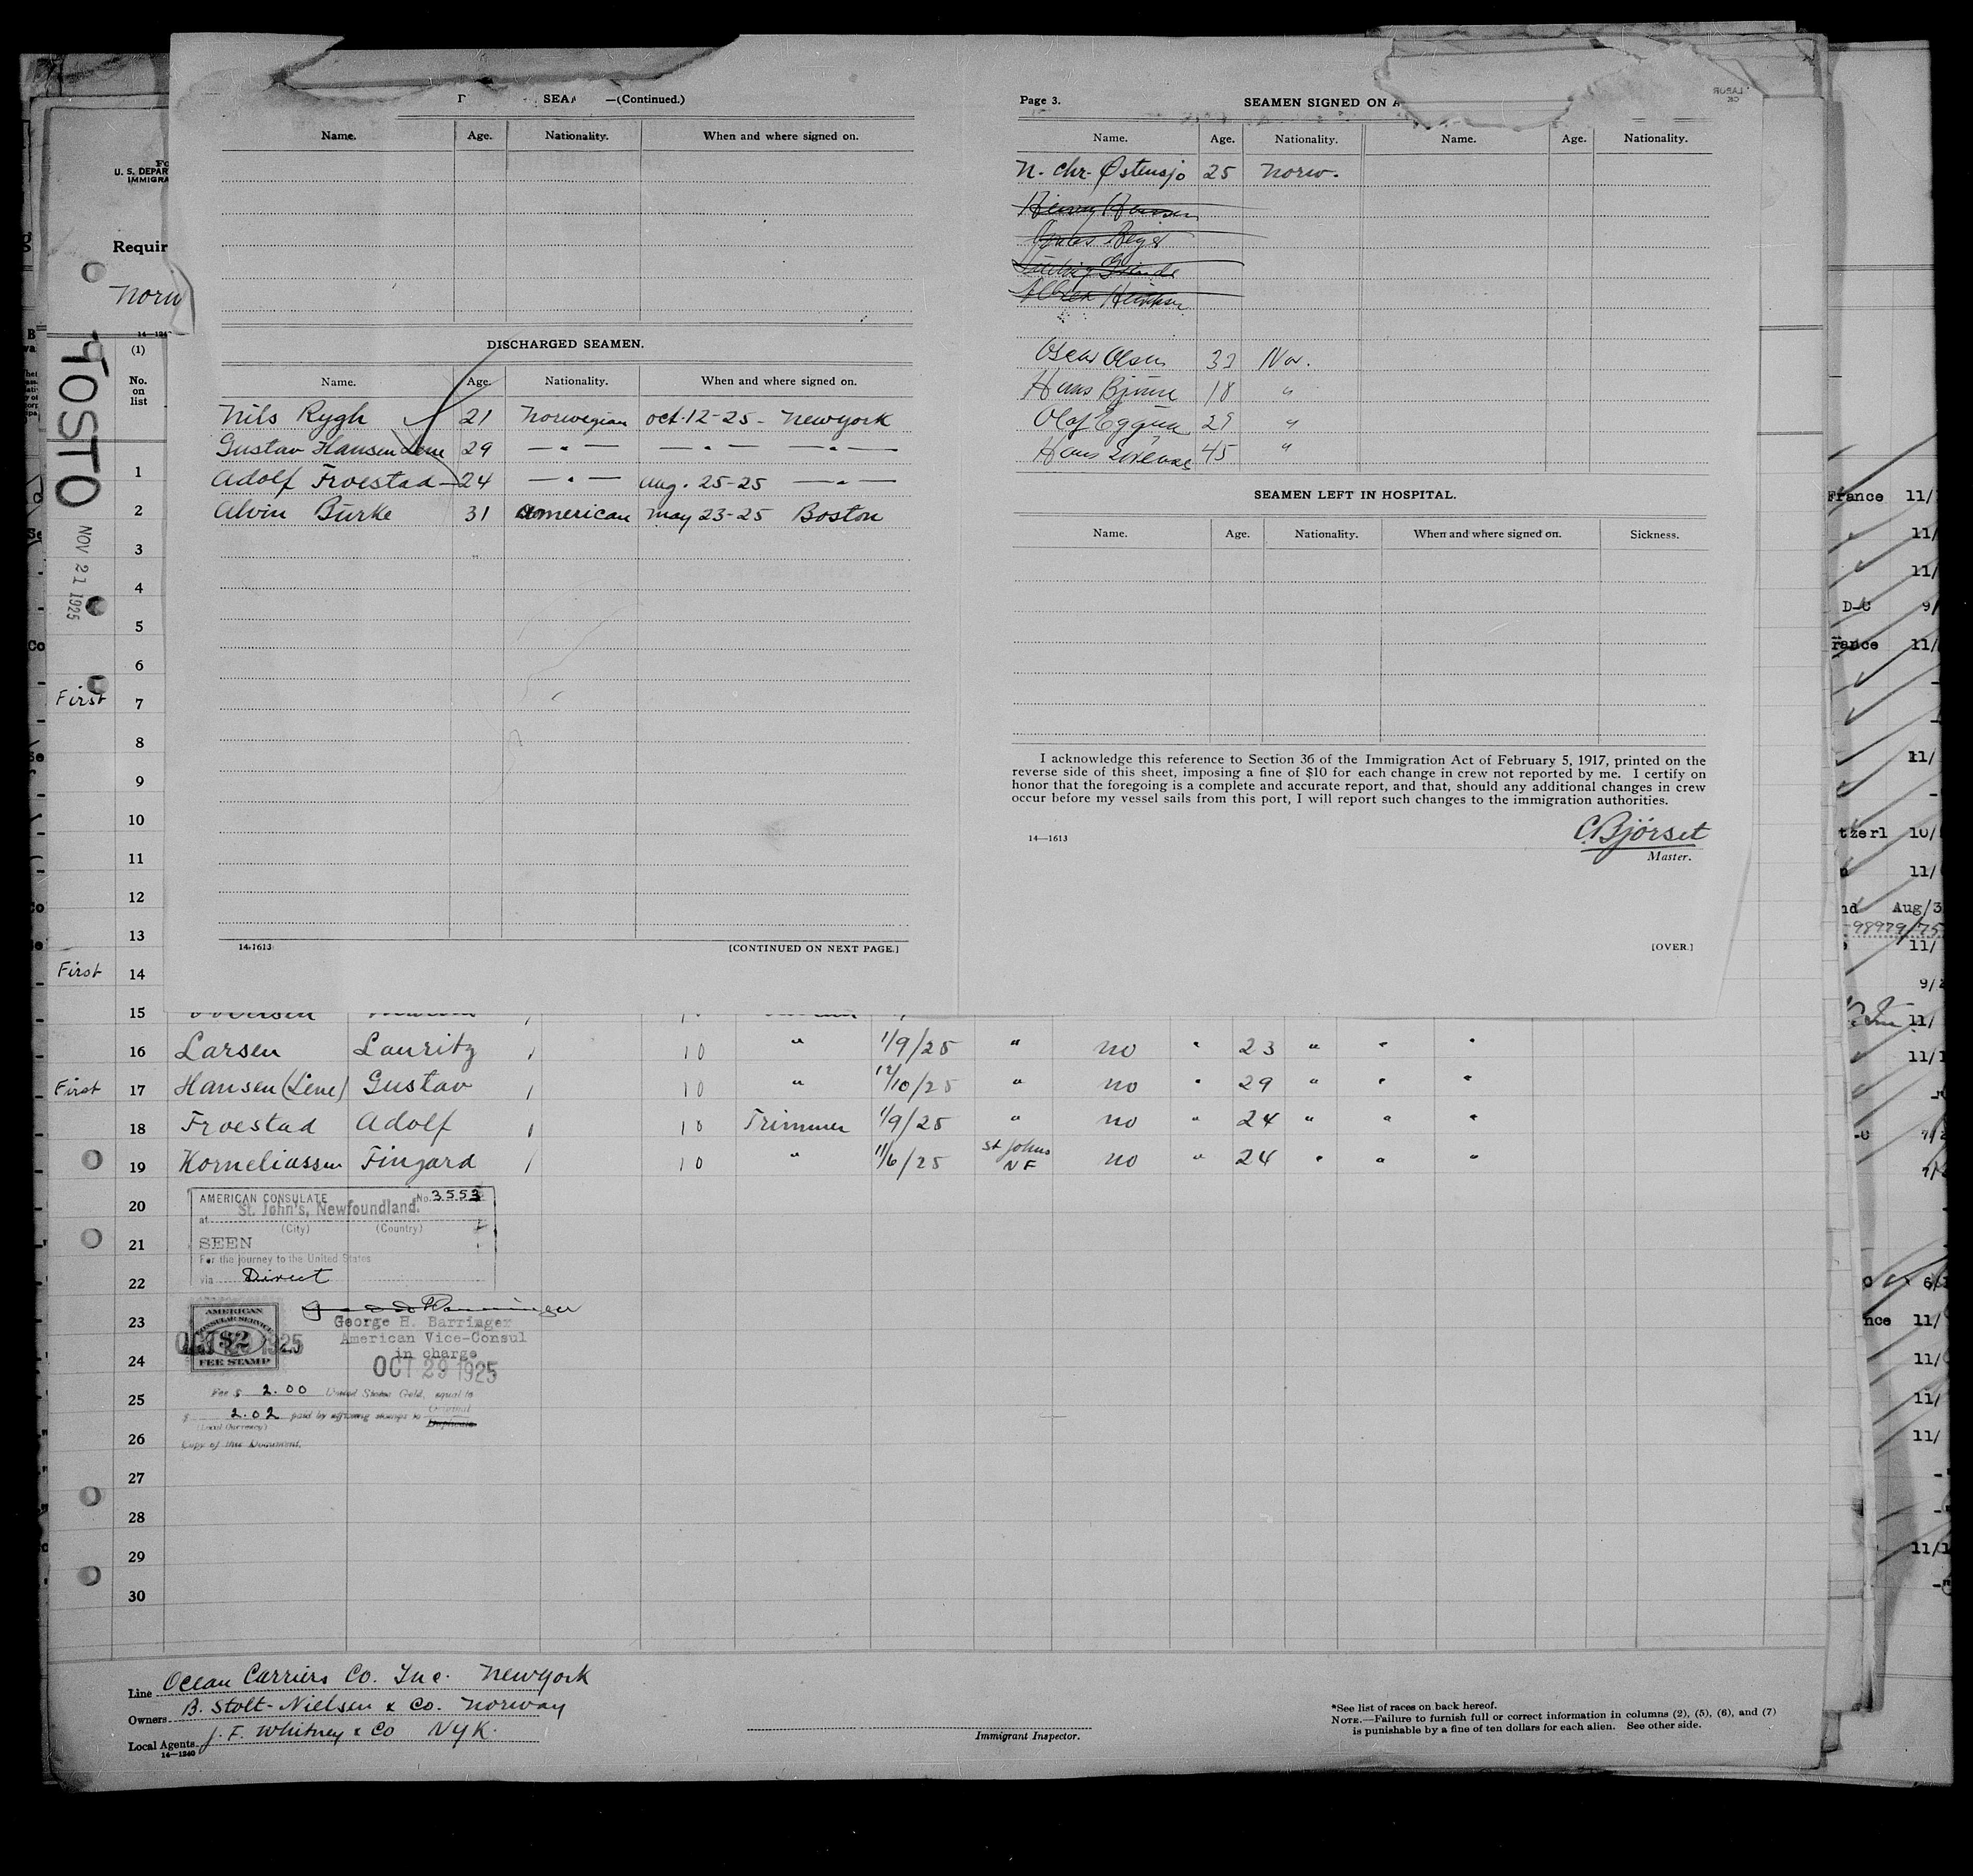 SEA —(Continued.)
Name. Age. Nationality. When and where signed on.
DISCHARGED SEAMEN.
Name. Age. Nationality. When and where signed on.
Nils Rygh 21 Norwegian oct-12-25- Newyork
Gustav Hansen Lene 29 — " — — " — — " —
Adolf Froestad 24 — " — aug. 25-25 — " —
Alvin Burke 31 American may 23-25 Boston
14-1613
[CONTINUED ON NEXT PAGE.]
Page 3.
SEAMEN SIGNED ON A
Name. Age. Nationality. Name. Age. Nationality.
N. Chr. Østensjo 25 Norw.
Oscar Olsen 33 Nor.
Hans 18 "
Olof 29 "
Hans 45 "
SEAMEN LEFT IN HOSPITAL.
Name. Age. Nationality. When and where signed on. Sickness.
I acknowledge this reference to Section 36 of the Immigration Act of February 5, 1917, printed on the
reverse side of this sheet, imposing a fine of $10 for each change in crew not reported by me. I certify on
honor that the foregoing is a complete and accurate report, and that, should any additional changes in crew
occur before my vessel sails from this port, I will report such changes to the immigration authorities.
C. Bjórset
14—1613
Master.
[OVER.]
U. S. DEPAR
IMMIGRA
Requir
Norw
TOSTO
NOV 21 1925
(1)
No.
on
list
1
2
3
4
5
6
First 7
8
9
10
11
12
13
First 14
15
16 Larsen Lauritz 1 10 " 1/9/25 " no " 23 " " "
First 17 Hansen (Lene) Gustav 1 10 " 12/10/25 " no " 29 " " "
18 Froestad Adolf 1 10 Trimmer 1/9/25 " no " 24 " " "
19 Korneliussen Fingard 1 10 " 11/6/25 St Johns NF no " 24 " " "
20
21
22
23
24
25
26
27
28
29
30
AMERICAN CONSULATE No. 3553
at St. John's, Newfoundland.
(City) (Country)
SEEN
For the journey to the United States
via Direct
AMERICAN
CONSULAR SERVICE
$2
FEE STAMP
George H. Barringer
American Vice-Consul
in charge
OCT 29 1925
Fee $ 2.00 United States Gold, equal to
$ 2.02 paid by affixing stamps to Original
(Local Currency) Duplicate
Copy of this Document.
Line Ocean Carriers Co. Inc. Newyork
Owners B. Stolt-Nielsen & Co. Norway
Local Agents J. F. Whitney & Co NYK.
14—1240
Immigrant Inspector.
*See list of races on back hereof.
NOTE.—Failure to furnish full or correct information in columns (2), (5), (6), and (7)
is punishable by a fine of ten dollars for each alien. See other side.
France 11/
11/
11/
D-C 9/
rance 11/
11/
tzerl 10/
11/
nd Aug/3
98979/75
11/
9/2
11/
11/1
nce 11/
11/
11/
11/
11/1